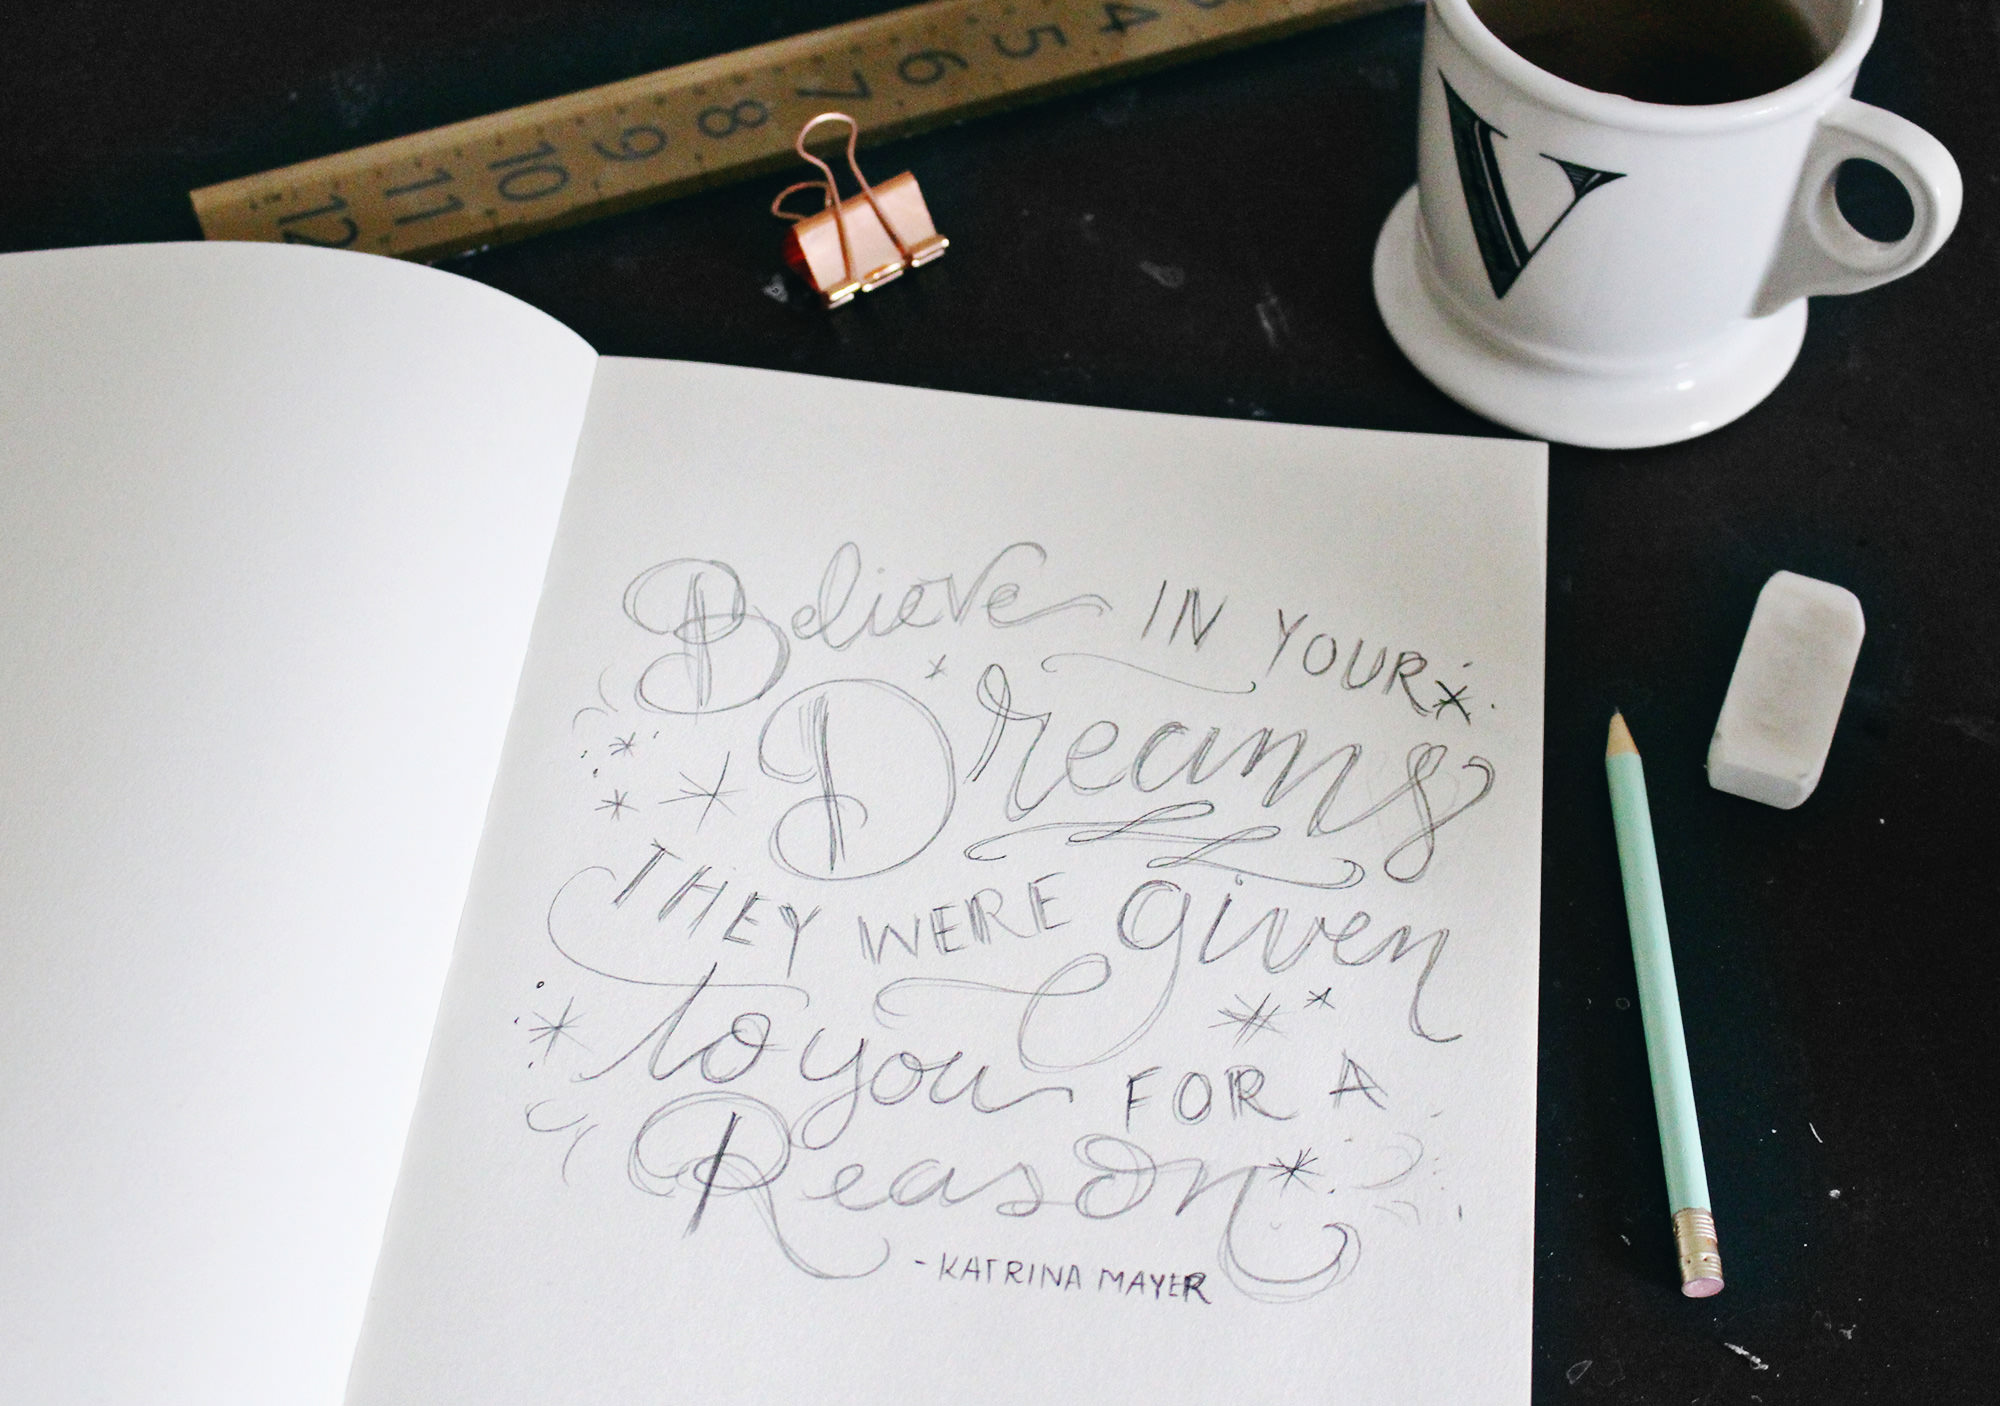 4 5 6 7 8 9 10 11 12
V
Believe IN YOUR
Dreams
THEY WERE given
to you FOR A
Reason
- KATRINA MAYER